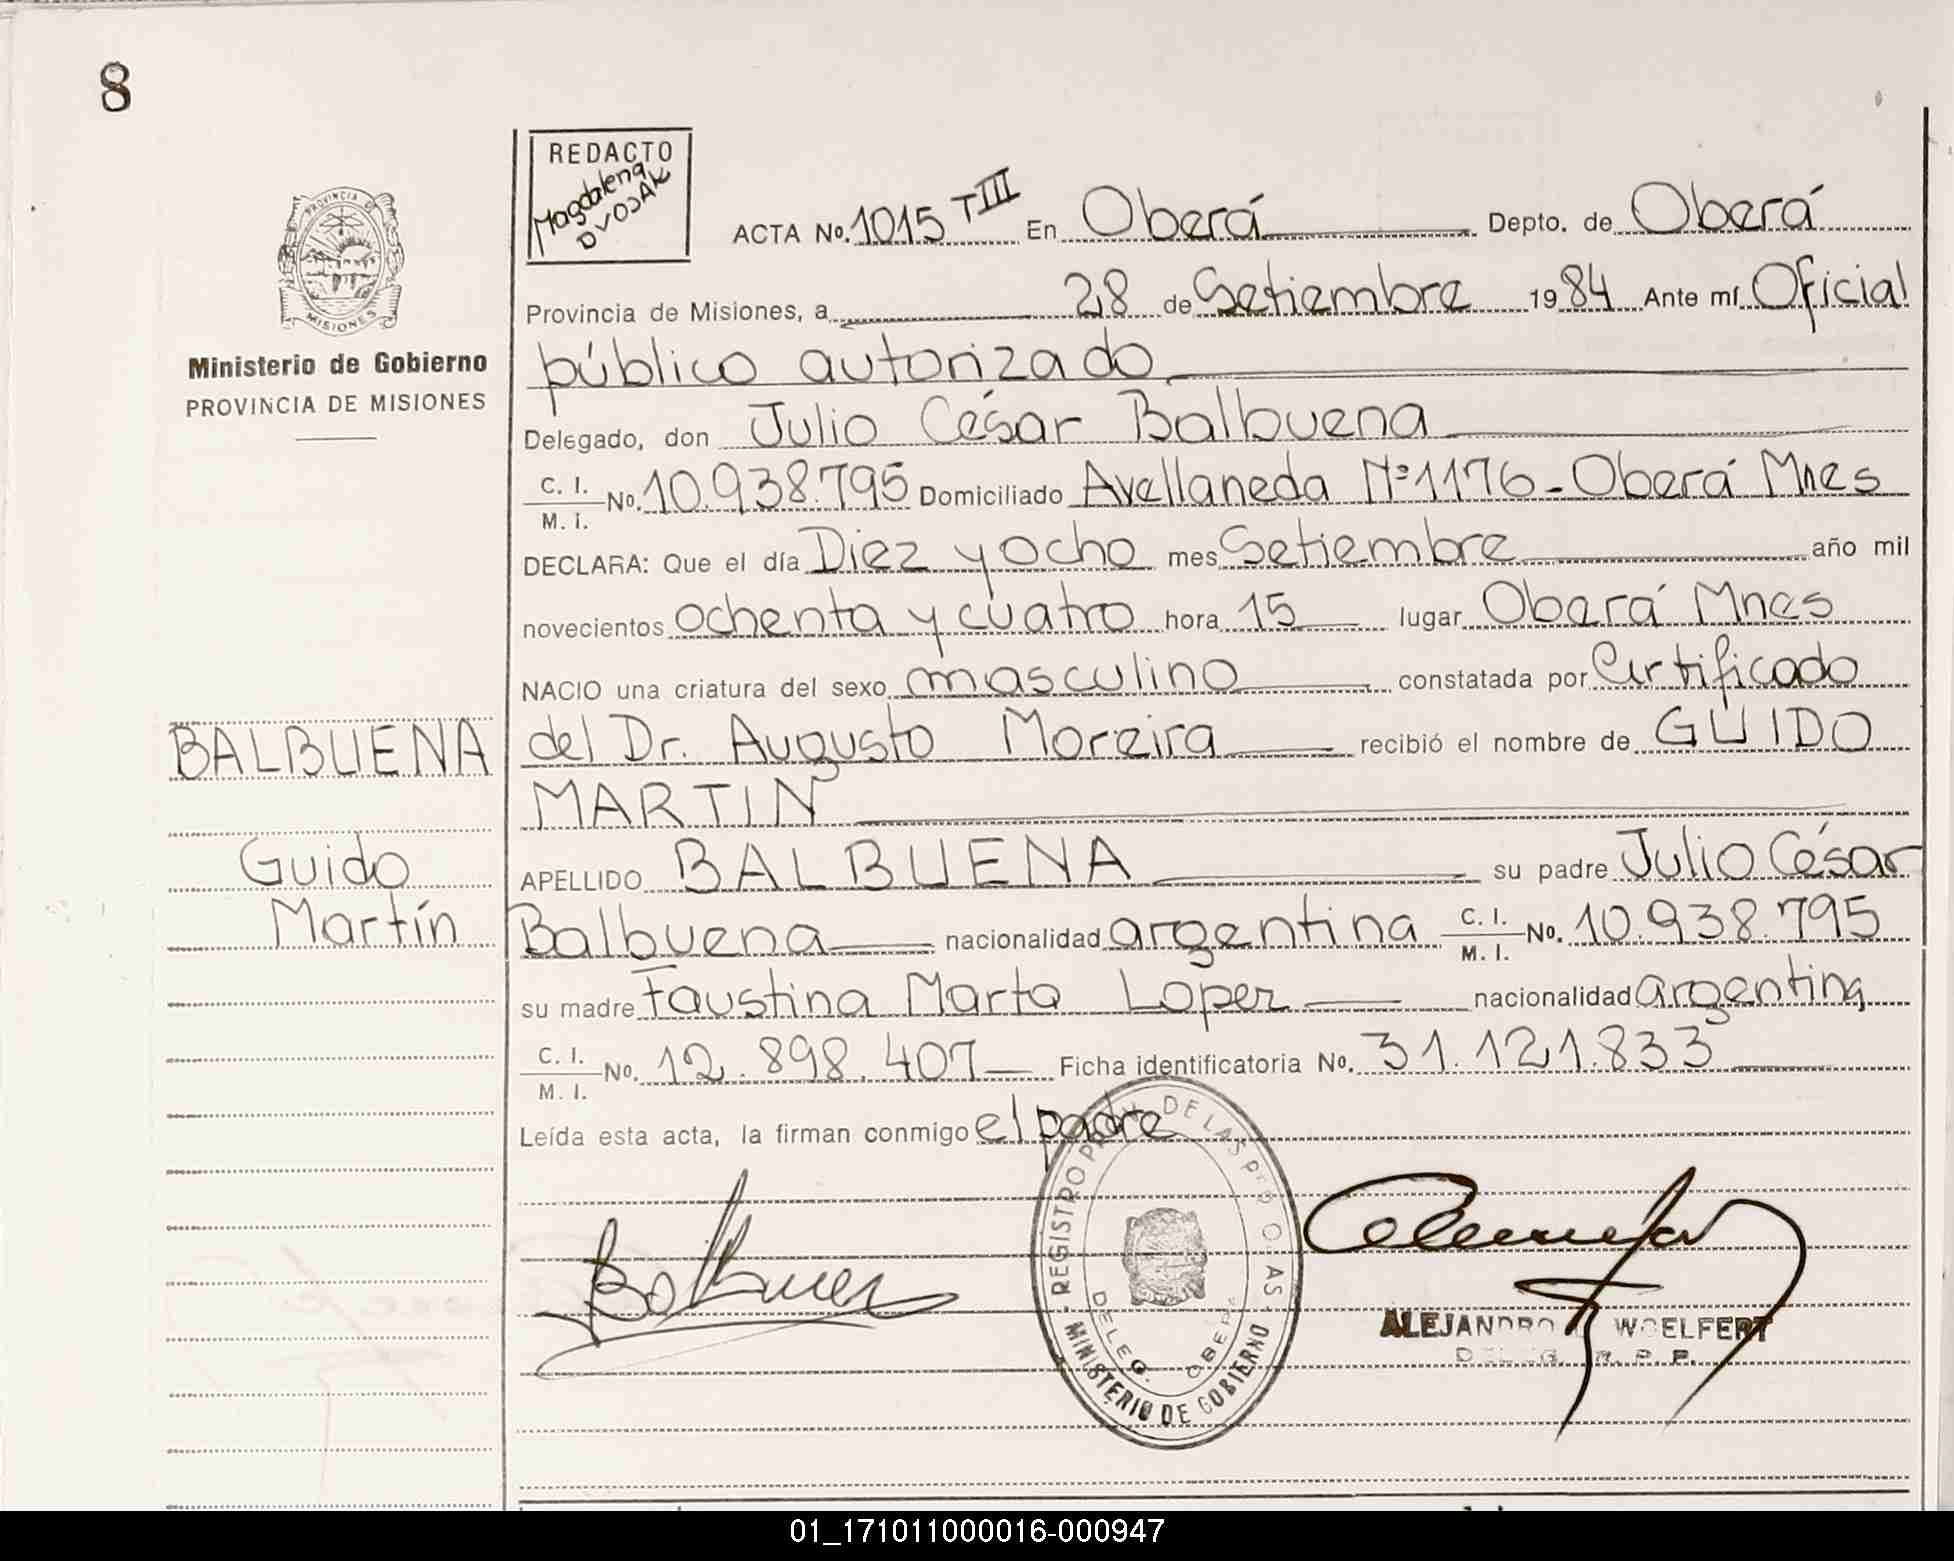 8
PROVINCIA D
MISIONES
Ministerio de Gobierno
PROVINCIA DE MISIONES
BALBUENA
Guido
Martín
REDACTO
Magdalena
DVOJAK
ACTA No. 1015 TIII En Oberá Depto. de Oberá
Provincia de Misiones, a 28 de Setiembre 1984 Ante mí Oficial
público autorizado
Delegado, don Julio César Balbuena
C. I. / M. I. No. 10.938.795 Domiciliado Avellaneda Nº 1176 - Oberá Mnes
DECLARA: Que el día Diez y ocho mes Setiembre año mil
novecientos ochenta y cuatro hora 15 lugar Oberá Mnes
NACIO una criatura del sexo masculino constatada por Certificado
del Dr. Augusto Moreira recibió el nombre de GUIDO
MARTIN
APELLIDO BALBUENA su padre Julio César
Balbuena nacionalidad argentina C. I. / M. I. No. 10.938.795
su madre Faustina Marta Lopez nacionalidad argentina
C. I. / M. I. No. 12.898.407 Ficha identificatoria No. 31.121.833
Leída esta acta, la firman conmigo el padre
REGISTRO DE LAS
DELEG. OBERA
MINISTERIO DE GOBIERNO
Balbuena
ALEJANDRO WOELFERT
DELEG. R. P. P.
01_171011000016-000947